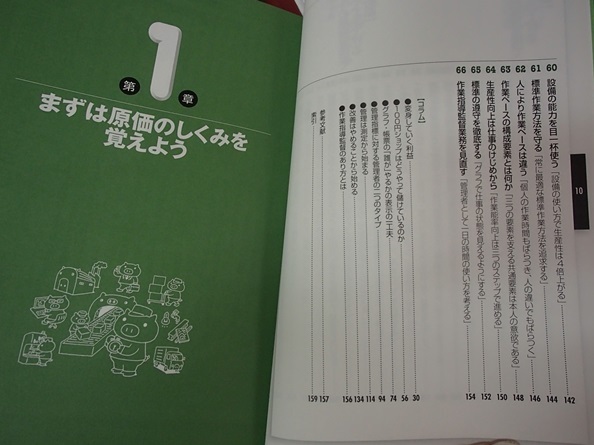 60 設備の能力を目一杯使う「設備の使い方で生産性は4倍上がる」 142
61 標準作業方法を守る「常に最適な標準作業方法を追求する」 144
62 人により作業ペースは違う「個人の作業時間もばらつき、人の違いでもばらつく」 146
63 作業ペースの構成要素とは何か「三つの要素を支える共通要素は本人の意欲である」 148
64 生産性向上は仕事のけじめから「作業能率向上は三つのステップで進める」 150
65 標準の遵守を徹底する「グラフで仕事の状態を見えるようにする」 152
66 作業指導監督業務を見直す「管理者として一日の時間の使い方を考える」 154
【コラム】
●変身していく利益 30
●100円ショップはどうやって儲けているのか 56
●グラフ・帳票の「誰が」やるかの表示の一工夫 74
●管理指標に対する管理者の二つのタイプ 94
●管理は測定から始まる 114
●改善はやめることから始める 134
●作業指導監督のあり方とは 156
参考文献 157
索引 159
10
第1章
まずは原価のしくみを
覚えよう